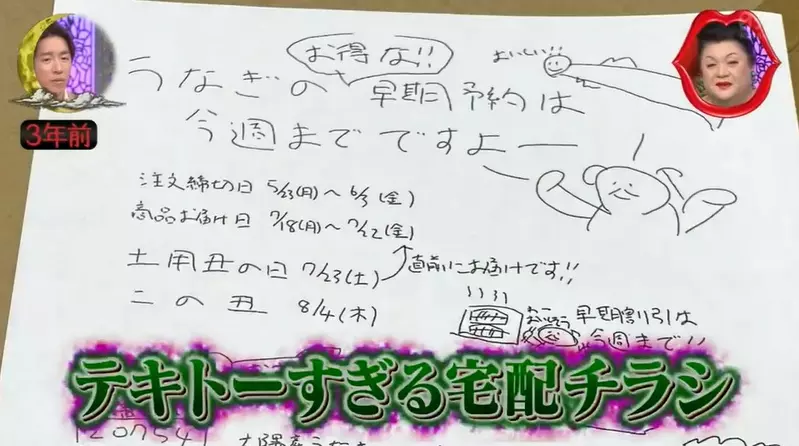 3年前
お得な!!
おいしい!!
うなぎの早期予約は
今週までですよー
注文締切日 5/23(月)～6/3(金)
商品お届け日 7/18(月)～7/22(金)
直前にお届けです!!
土用丑の日 7/23(土)
二の丑 8/4(木)
早期割引は
今週まで!!
テキトーすぎる宅配チラシ
120754